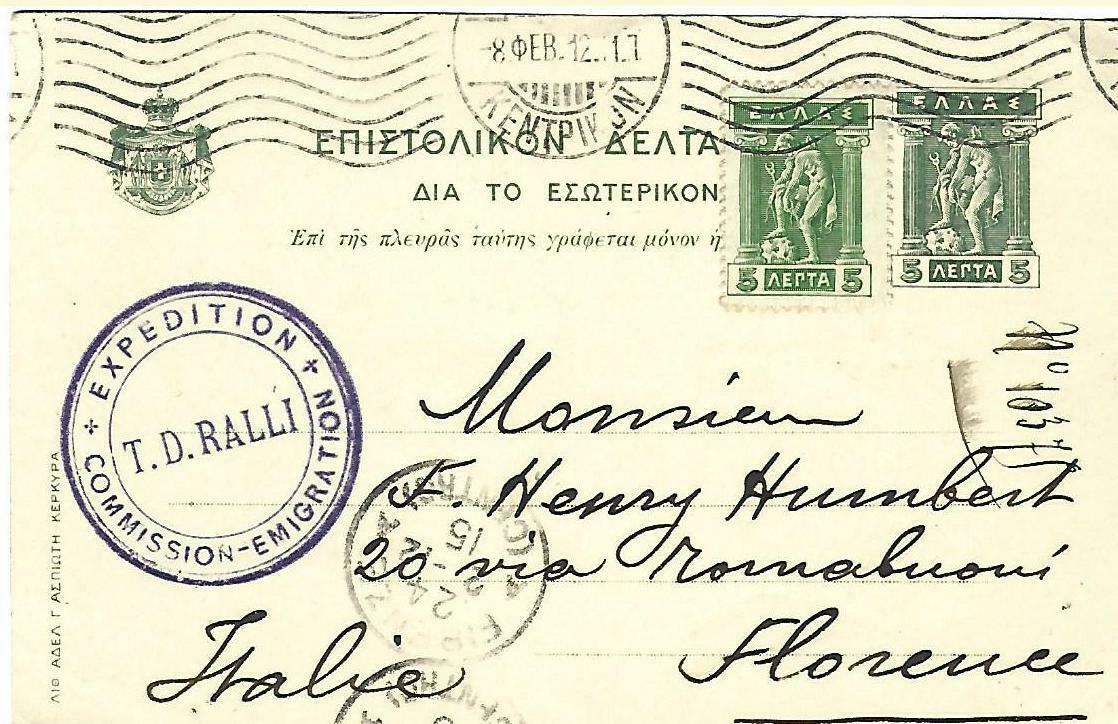 8 ΦΕΒ. 12
ΚΕΝΤΡΙΚΟΝ
ΕΠΙΣΤΟΛΙΚΟΝ ΔΕΛΤΑ
ΔΙΑ ΤΟ ΕΣΩΤΕΡΙΚΟΝ
Ἐπὶ τῆς πλευρᾶς ταύτης γράφεται μόνον ἡ
ΕΛΛΑΣ
5 ΛΕΠΤΑ 5
ΕΛΛΑΣ
5 ΛΕΠΤΑ 5
EXPEDITION
COMMISSION-EMIGRATION
T.D.RALLI
Monsieur
F. Henry Humbert
20 via Tornabuoni
Florence
Italie
ΛΙΘ ΑΔΕΛ Γ ΑΣΠΙΩΤΗ ΚΕΡΚΥΡΑ